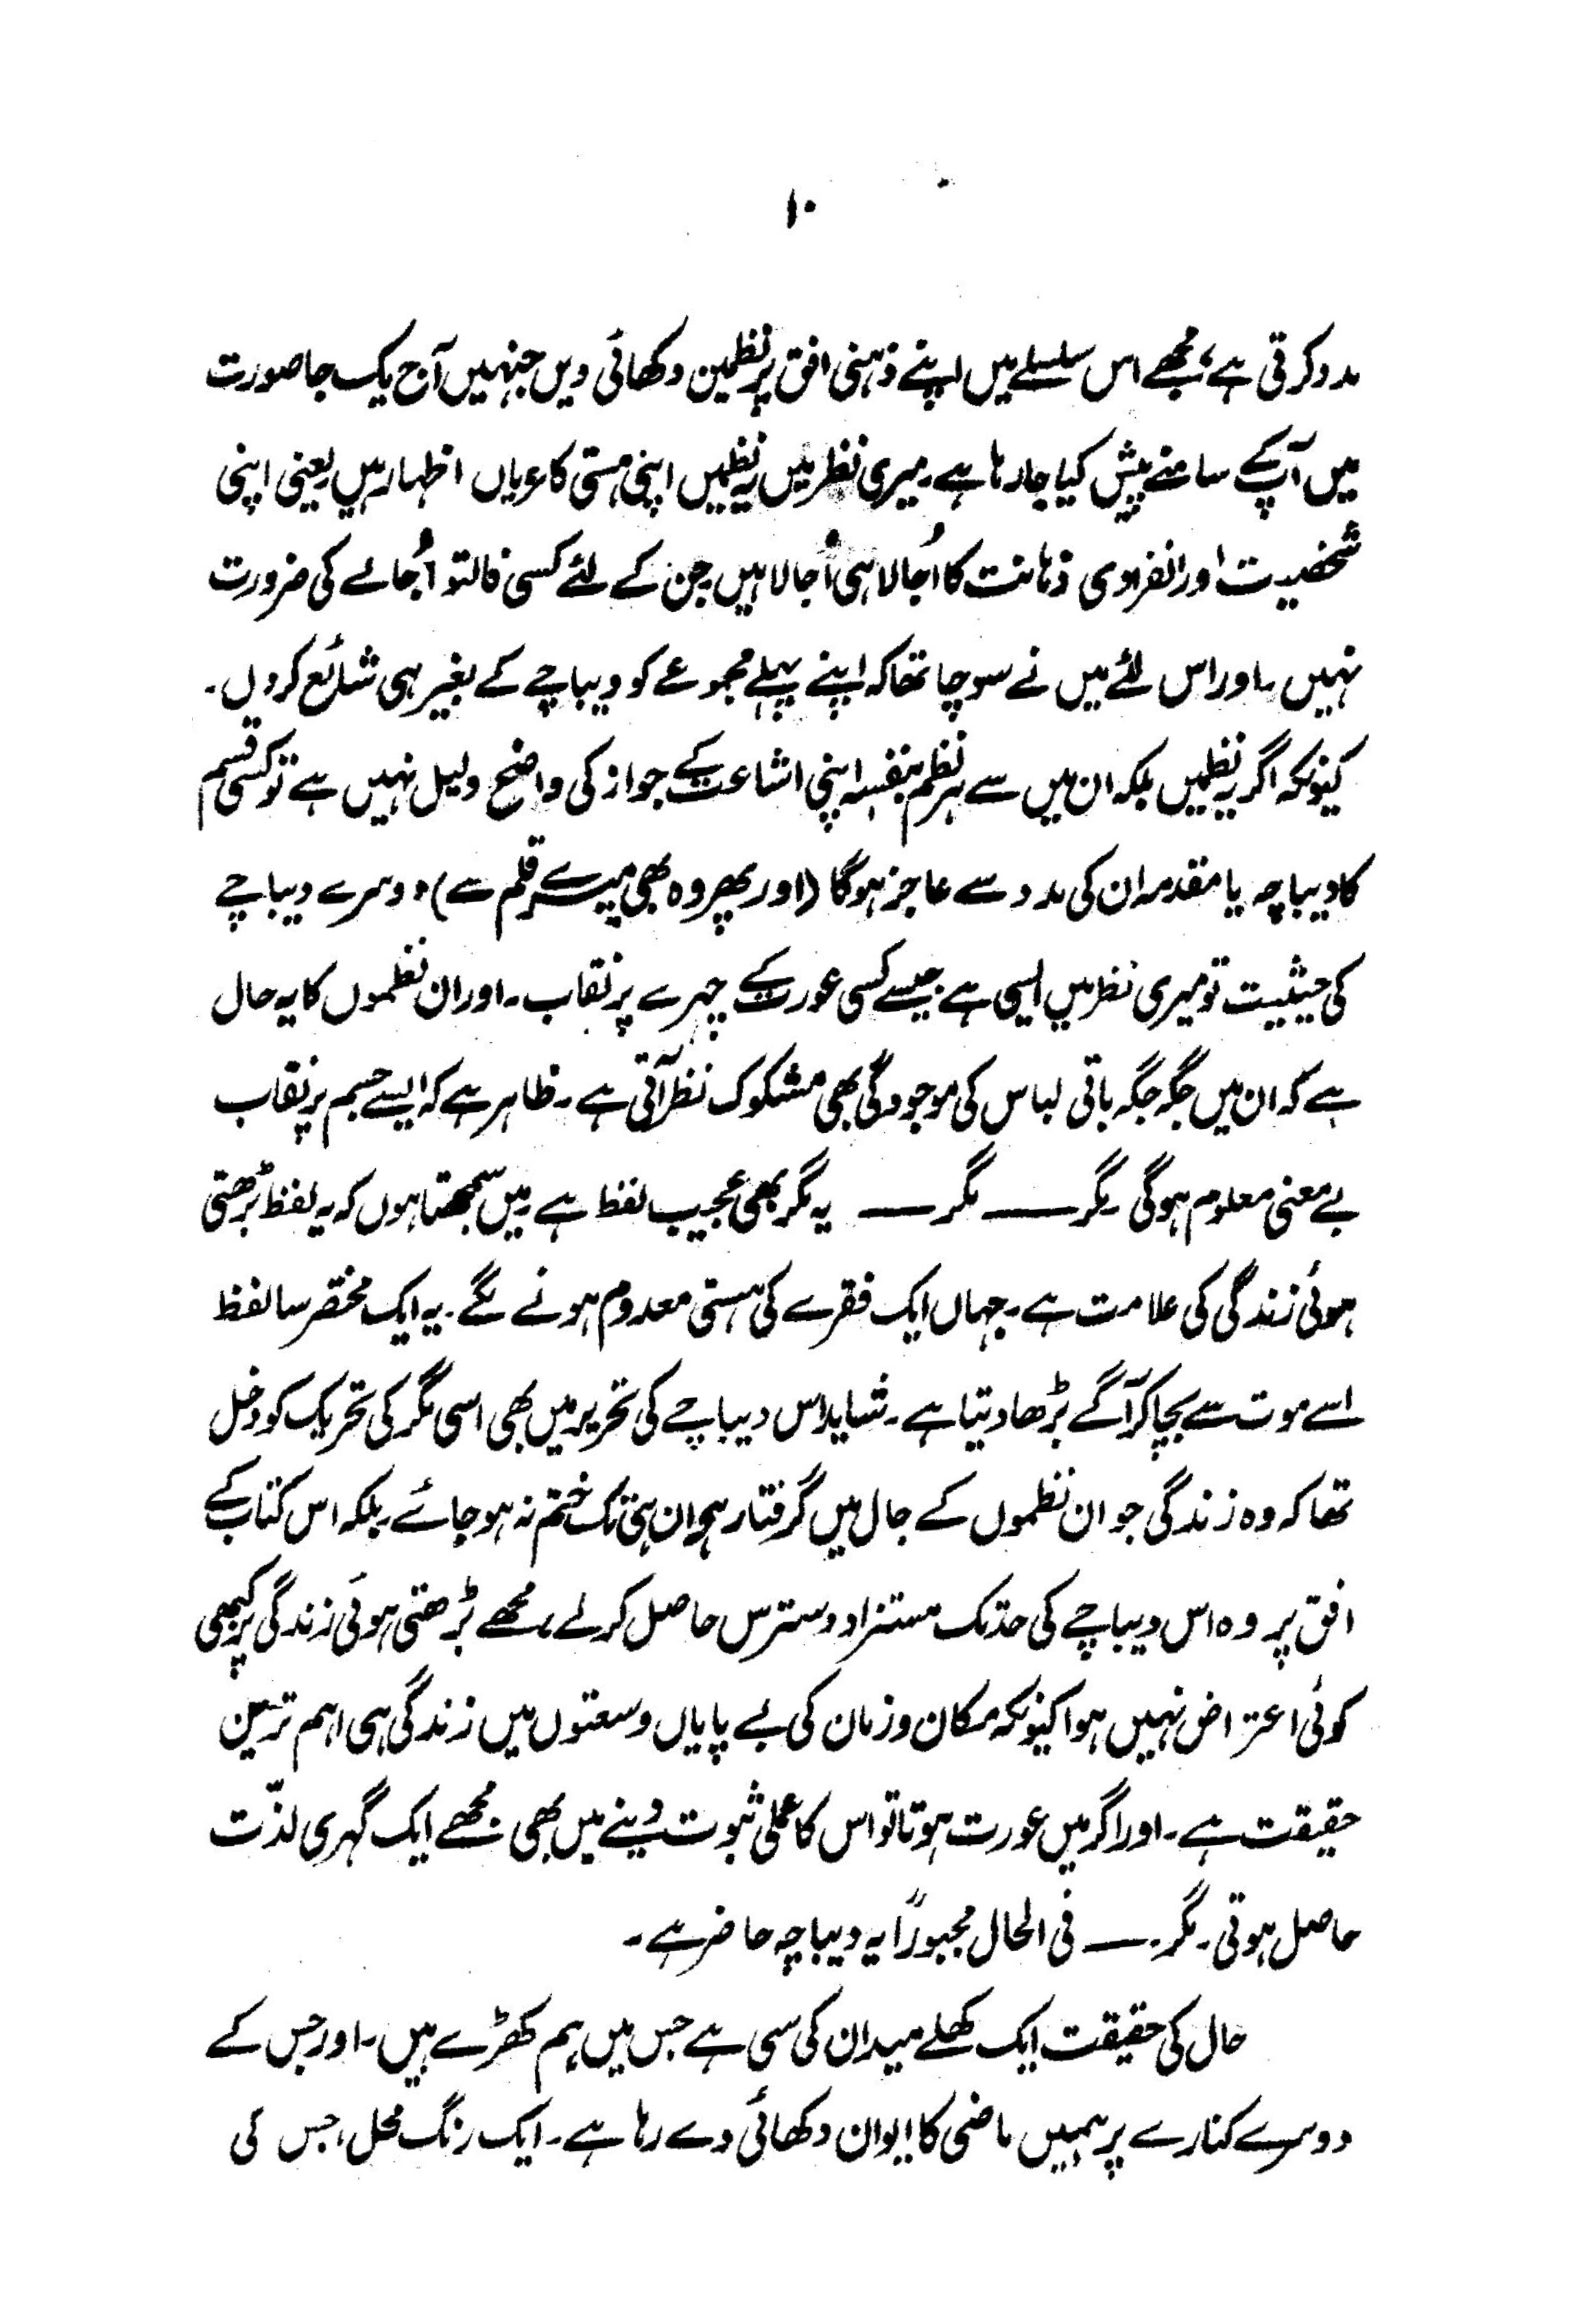 ۱۰
مدد کرتی ہے، مجھے اس سلسلے میں اپنے ذہنی افق پر نظمیں دکھائی دیں جنہیں آج یک جا صورت
میں آپ کے سامنے پیش کیا جا رہا ہے۔ میری نظر میں یہ نظمیں اپنی ہستی کا عریاں اظہار ہیں یعنی اپنی
شخصیت اور انفرادی ذہانت کا اُجالا ہی اُجالا ہیں جن کے لئے کسی فالتو اُجالے کی ضرورت
نہیں۔ اور اس لئے میں نے سوچا تھا کہ اپنے پہلے مجموعے کو دیباچے کے بغیر ہی شائع کردوں۔
کیونکہ اگر یہ نظمیں بلکہ ان میں سے ہر نظم بنفسہ اپنی اشاعت کے جواز کی واضح دلیل نہیں ہے تو کسی قسم
کا دیباچہ یا مقدمہ ان کی مدد سے عاجز ہوگا (اور پھر وہ بھی میرے قلم سے) دوسرے دیباچے
کی حیثیت تو میری نظر میں ایسی ہے جیسے کسی عورت کے چہرے پر نقاب۔ اور ان نظموں کا یہ حال
ہے کہ ان میں جگہ جگہ باقی لباس کی موجودگی بھی مشکوک نظر آتی ہے۔ ظاہر ہے کہ ایسے جسم پر نقاب
بے معنی معلوم ہوگی۔ مگر ــــ مگر ــــ یہ مگر بھی عجیب لفظ ہے میں سمجھتا ہوں کہ یہ لفظ بڑھتی
ہوئی زندگی کی علامت ہے۔ جہاں ایک فقرے کی ہستی معدوم ہونے لگے۔ یہ ایک مختصر سا لفظ
اسے موت سے بچا کر آگے بڑھا دیتا ہے۔ شاید اس دیباچے کی تحریر میں بھی اسی مگر کی تحریک کو دخل
تھا کہ وہ زندگی جو ان نظموں کے جال میں گرفتار ہے ان ہی تک ختم نہ ہو جائے۔ بلکہ اس کتاب کے
افق پر وہ اس دیباچے کی حد تک مستزاد دسترس حاصل کرلے، مجھے بڑھتی ہوئی زندگی پر کبھی
کوئی اعتراض نہیں ہوا کیونکہ مکان و زمان کی بے پایاں وسعتوں میں زندگی ہی اہم ترین
حقیقت ہے۔ اور اگر میں عورت ہوتا تو اس کا عملی ثبوت دینے میں بھی مجھے ایک گہری لذّت
حاصل ہوتی۔ مگر۔ ــــ فی الحال مجبوراً یہ دیباچہ حاضر ہے۔
حال کی حقیقت ایک کھلے میدان کی سی ہے جس میں ہم کھڑے ہیں۔ اور جس کے
دوسرے کنارے پر ہمیں ماضی کا ایوان دکھائی دے رہا ہے۔ ایک رنگ محل، جس کی